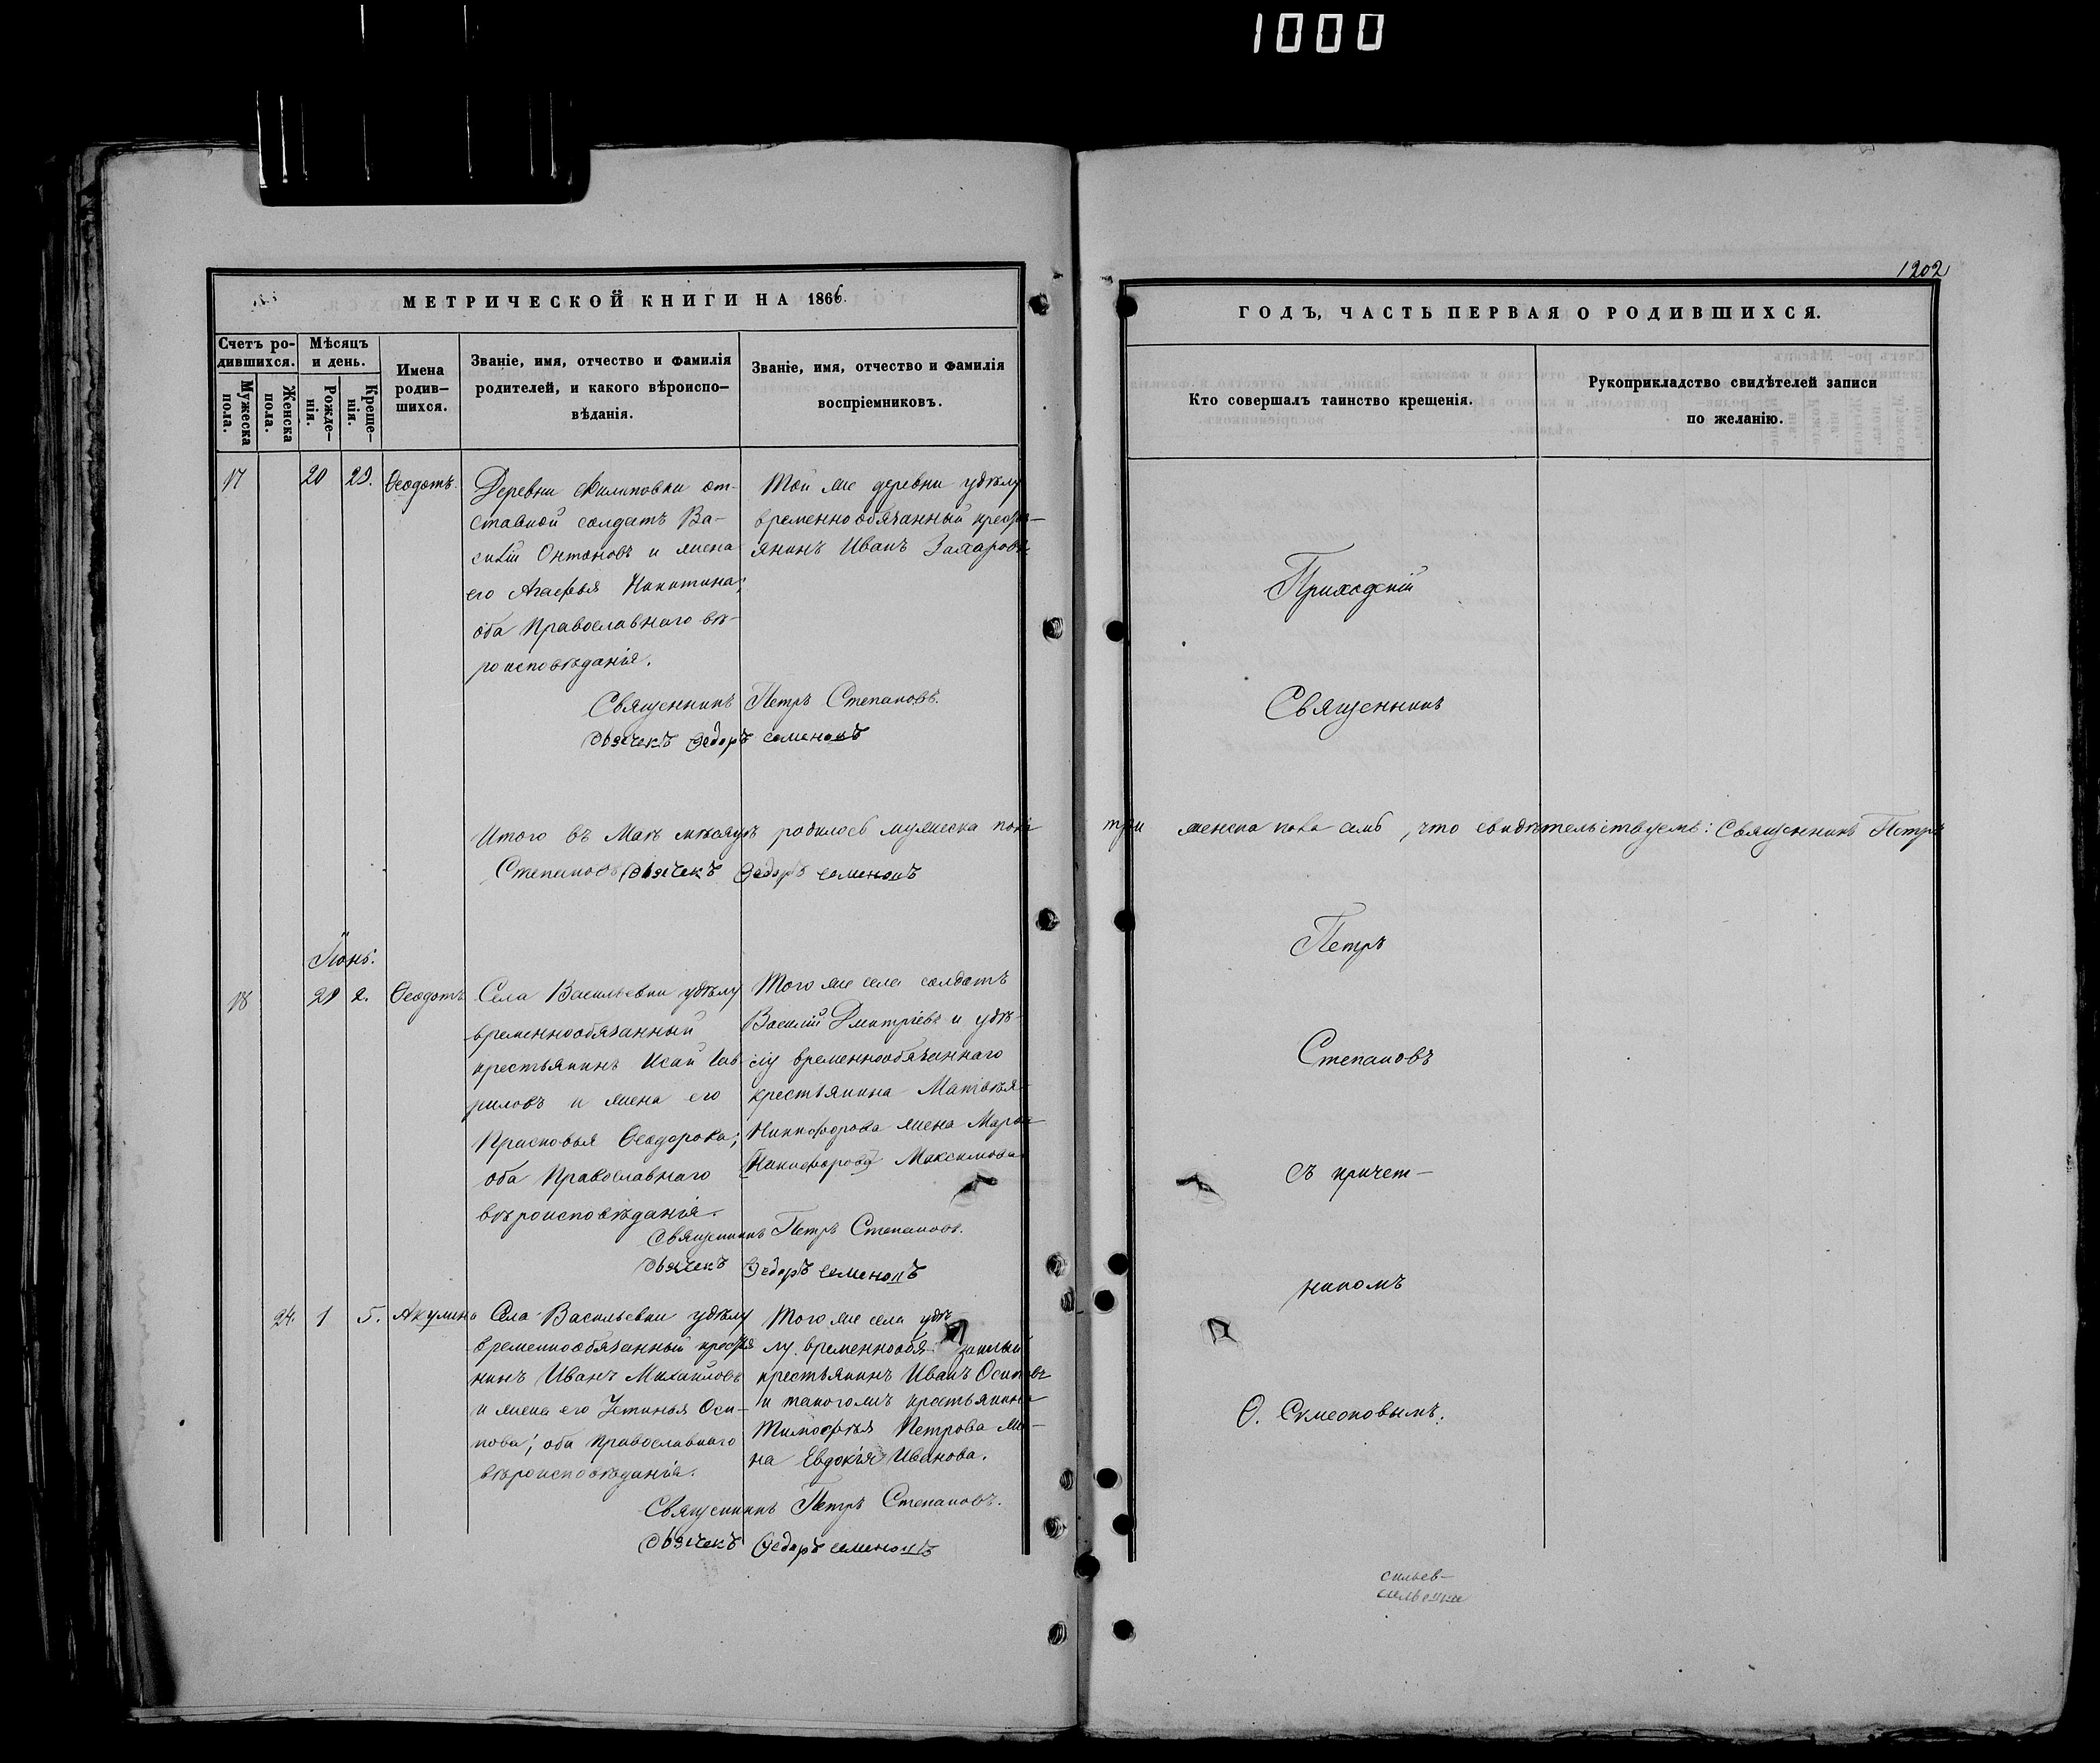 1000
1202
МЕТРИЧЕСКОЙ КНИГИ НА 1866.
Счетъ ро-
дившихся.
Мѣсяцъ
и день.
Мужеска
пола.
Женска
пола.
Рожде-
нія.
Креще-
нія.
Имена
родив-
шихся.
Званіе, имя, отчество и фамилія
родителей, и какого вѣроиспо-
вѣданія.
Званіе, имя, отчество и фамилія
воспріемниковъ.
17
20
23.
Ѳеодотъ.
Деревни Филиповки от-
ставной солдатъ Ва-
силій Онтоновъ и жена
его Агафья Никитина;
оба Православнаго вѣ-
роисповѣданія.
Той же деревни удѣлу
временнообязанный кресть-
янинъ Иванъ Захаровъ
Священникъ Петръ Степановъ.
Дьячекъ Ѳедоръ семеновъ
Итого въ Маѣ мѣсяцѣ родилось мужеска пола
Степановъ Дьячекъ Ѳедоръ семеновъ
Іюнь.
18
29
2.
Ѳеодотъ
Села Васильевки удѣлу
временнообязанный
крестьянинъ Исай Гав
риловъ и жена его
Прасковья Ѳеодорова;
оба Православнаго
вѣроисповѣданія.
Того же села солдатъ
Василій Дмитріевъ и удѣ-
лу временнообязаннаго
крестьянина Матвѣя
Никифорова жена Марѳа
(Никифорова) Максимова
Священникъ Петръ Степановъ.
Дьячекъ Ѳедоръ семеновъ
24.
1
5.
Акулина
Села Васильевки удѣлу
временнообязанный крестья
нинъ Иванъ Михайловъ
и жена его Устинья Оси-
пова; оба Православнаго
вѣроисповѣданія.
Того же села удѣ
лу временнообязанный
крестьянинъ Иванъ Осиповъ
и такогожъ крестьянина
Тимофѣя Петрова же-
на Евдокія Иванова.
Священникъ Петръ Степановъ.
Дьячекъ Ѳедоръ семеновъ
ГОДЪ, ЧАСТЬ ПЕРВАЯ О РОДИВШИХСЯ.
Кто совершалъ таинство крещенія.
Рукоприкладство свидѣтелей записи
по желанію.
Приходскій
Священникъ
три женска пола семь, что свидѣтельствуемъ: Священникъ Петръ
Петръ
Степановъ
съ причет-
никомъ
Ѳ. Симеоновымъ.